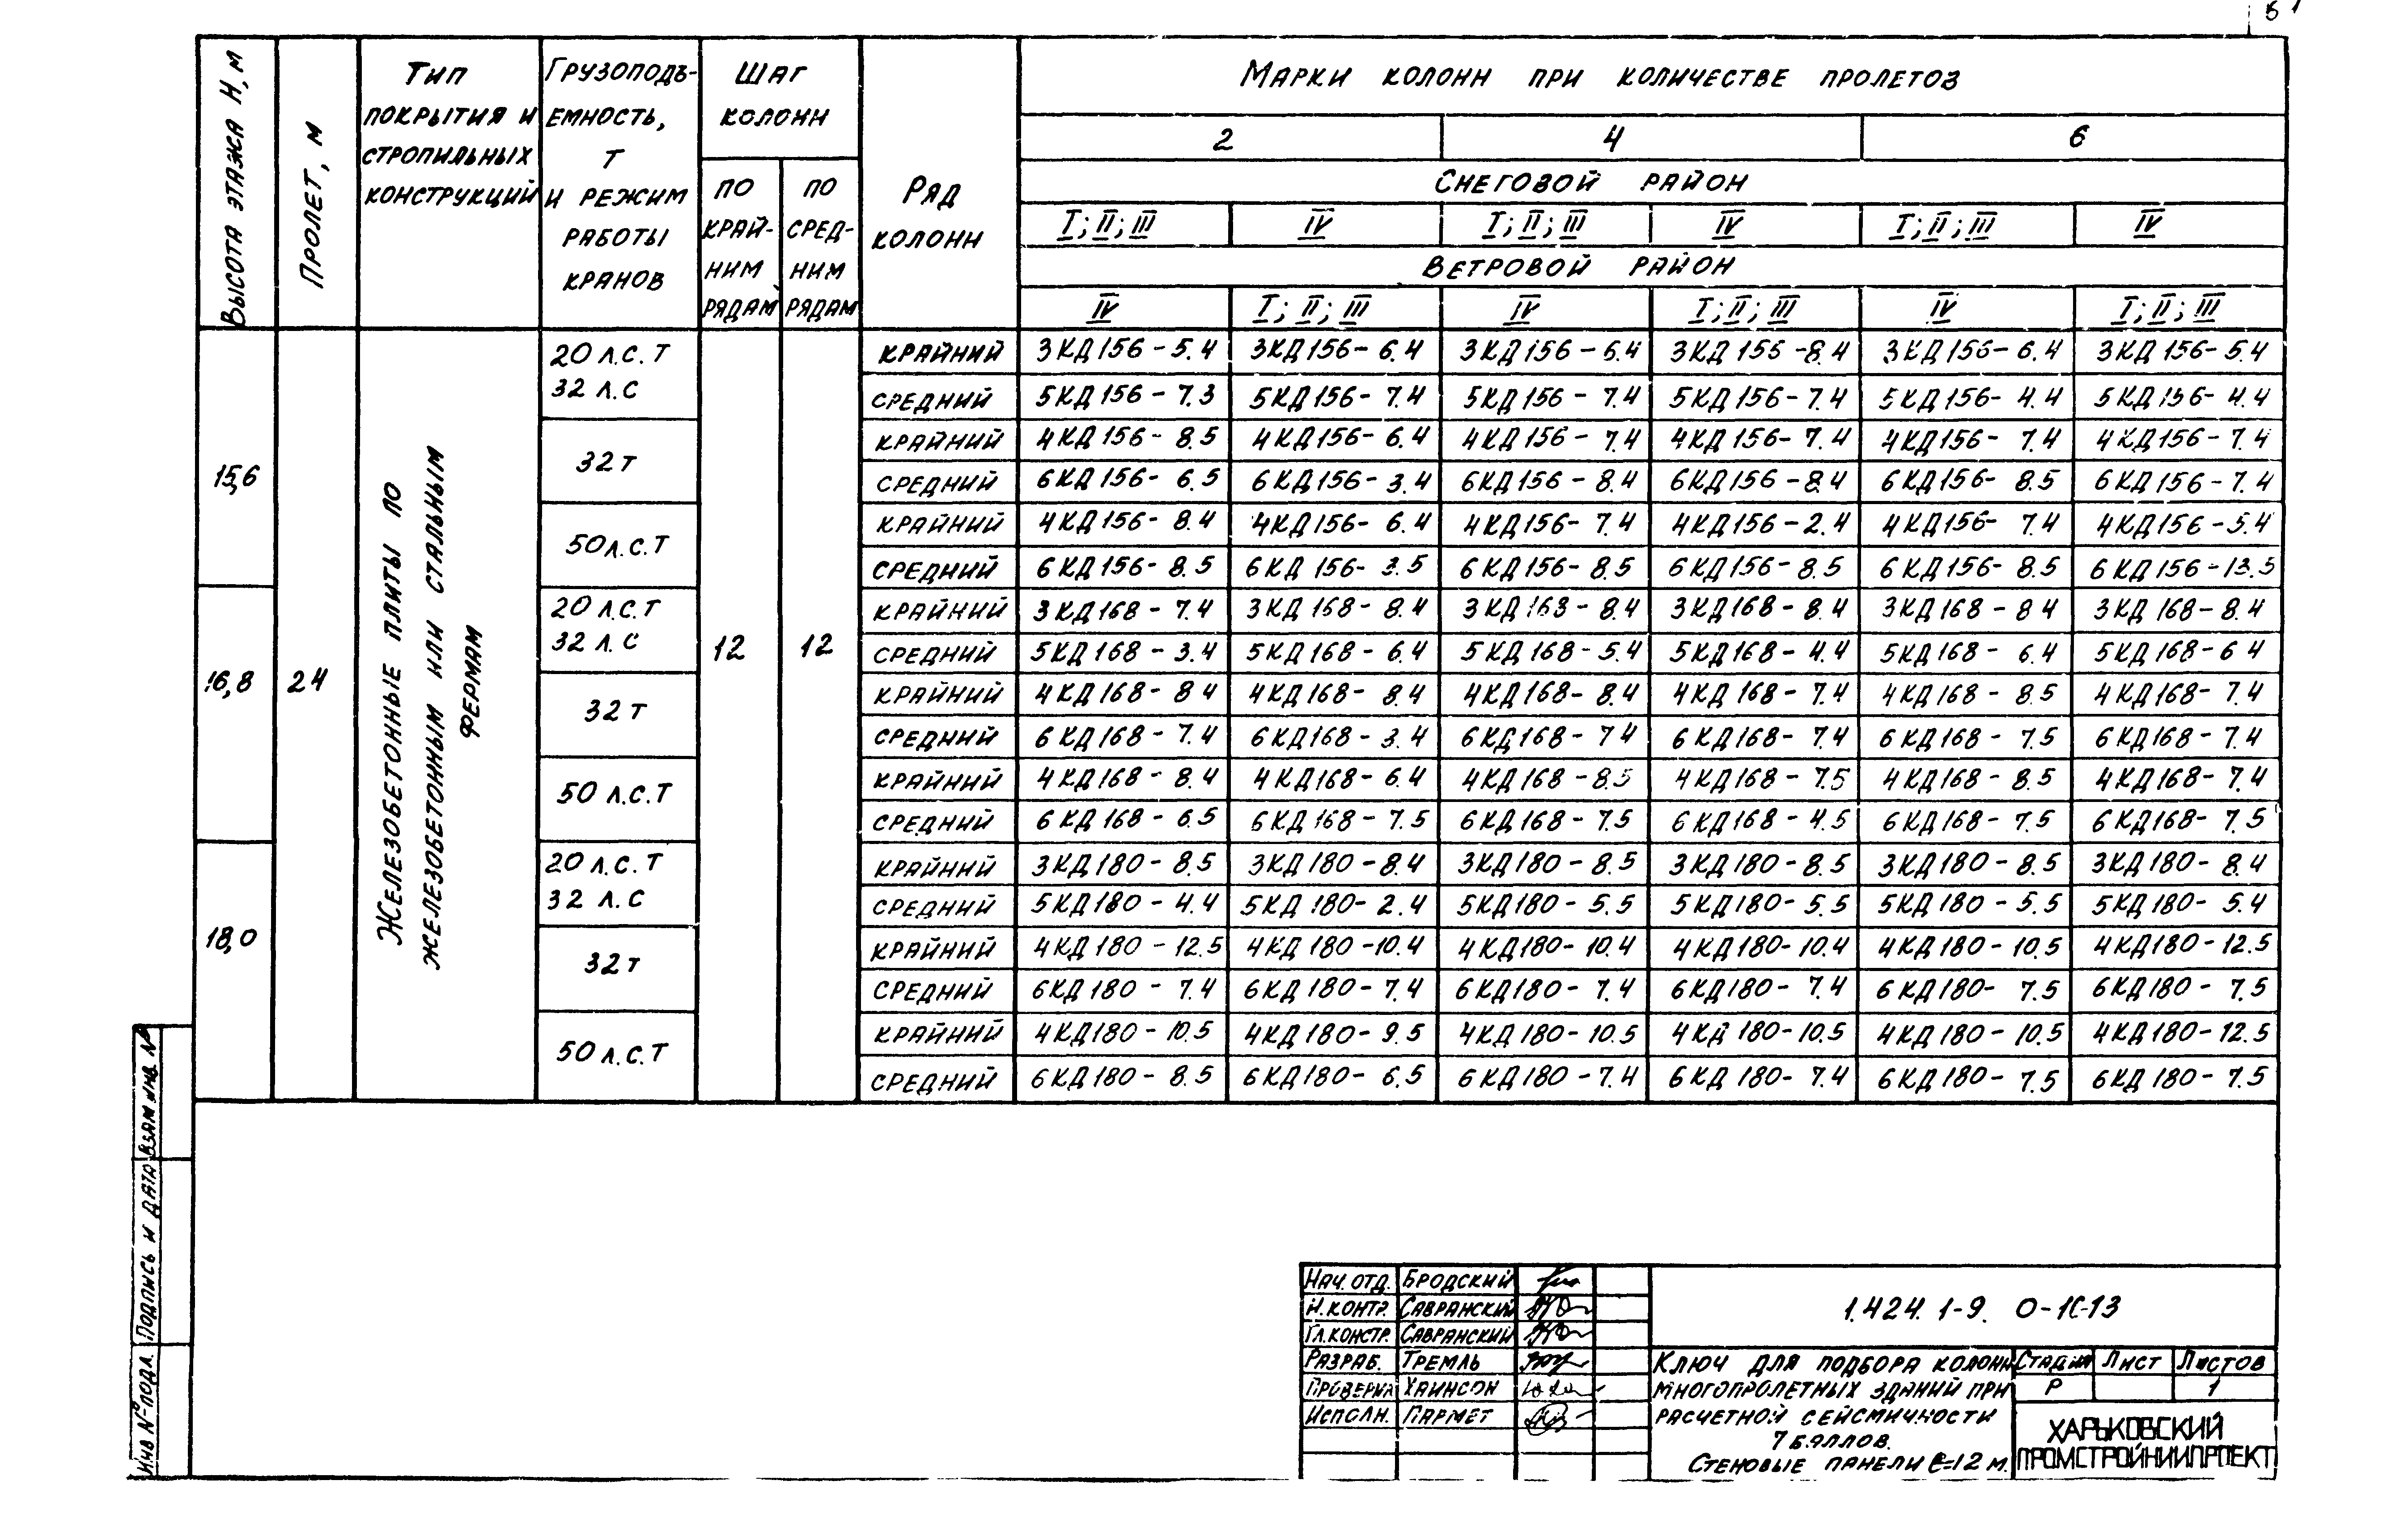 Высота этажа Н, м
Пролет, м
Тип покрытия и стропильных конструкций
Грузоподъ-
емность,
т
и режим
работы
кранов
Шаг
колонн
по
край-
ним
рядам
по
сред-
ним
рядам
Ряд
колонн
Марки колонн при количестве пролетов
2 4 6
Снеговой район
I; II; III IV I; II; III IV I; II; III IV
Ветровой район
IV I; II; III IV I; II; III IV I; II; III
15,6
16,8
18,0
24
Железобетонные плиты по
железобетонным или стальным
фермам
12 12
20 л.с.т
32 л.с
крайний 3КД156-5.4 3КД156-6.4 3КД156-6.4 3КД156-8.4 3КД156-6.4 3КД156-5.4
средний 5КД156-7.3 5КД156-7.4 5КД156-7.4 5КД156-7.4 5КД156-4.4 5КД156-4.4
32т
крайний 4КД156-8.5 4КД156-6.4 4КД156-7.4 4КД156-7.4 4КД156-7.4 4КД156-7.4
средний 6КД156-6.5 6КД156-3.4 6КД156-8.4 6КД156-8.4 6КД156-8.5 6КД156-7.4
50л.с.т
крайний 4КД156-8.4 4КД156-6.4 4КД156-7.4 4КД156-2.4 4КД156-7.4 4КД156-5.4
средний 6КД156-8.5 6КД156-3.5 6КД156-8.5 6КД156-8.5 6КД156-8.5 6КД156-13.5
20 л.с.т
32 л.с
крайний 3КД168-7.4 3КД168-8.4 3КД168-8.4 3КД168-8.4 3КД168-8 4 3КД168-8.4
средний 5КД168-3.4 5КД168-6.4 5КД168-5.4 5КД168-4.4 5КД168-6.4 5КД168-6 4
32 т
крайний 4КД168-8 4 4КД168-8.4 4КД168-8.4 4КД168-7.4 4КД168-8.5 4КД168-7.4
средний 6КД168-7.4 6КД168-3.4 6КД168-7 4 6КД168-7.4 6КД168-7.5 6КД168-7.4
50 л.с.т
крайний 4КД168-8.4 4КД168-6.4 4КД168-8.5 4КД168-7.5 4КД168-8.5 4КД168-7.4
средний 6КД168-6.5 6КД168-7.5 6КД168-7.5 6КД168-4.5 6КД168-7.5 6КД168-7.5
20 л.с.т
32 л.с
крайний 3КД180-8.5 3КД180-8.4 3КД180-8.5 3КД180-8.5 3КД180-8.5 3КД180-8.4
средний 5КД180-4.4 5КД180-2.4 5КД180-5.5 5КД180-5.5 5КД180-5.5 5КД180-5.4
32 т
крайний 4КД180-12.5 4КД180-10.4 4КД180-10.4 4КД180-10.4 4КД180-10.5 4КД180-12.5
средний 6КД180-7.4 6КД180-7.4 6КД180-7.4 6КД180-7.4 6КД180-7.5 6КД180-7.5
50 л.с.т
крайний 4КД180-10.5 4КД180-9.5 4КД180-10.5 4КД180-10.5 4КД180-10.5 4КД180-12.5
средний 6КД180-8.5 6КД180-6.5 6КД180-7.4 6КД180-7.4 6КД180-7.5 6КД180-7.5
Взам инв. №
Подпись и дата
Инв № подл.
Нач. отд. Бродский
Н. контр. Савранский
Гл. констр. Савранский
Разраб. Тремль
Проверил Хаинсон
Исполн. Пармет
1.424.1-9. 0-1С-13
Ключ для подбора колонн
многопролетных зданий при
расчетной сейсмичности
7 баллов.
Стеновые панели ℓ=12 м.
Стадия Лист Листов
Р 1
ХАРЬКОВСКИЙ
ПРОМСТРОЙНИИПРОЕКТ